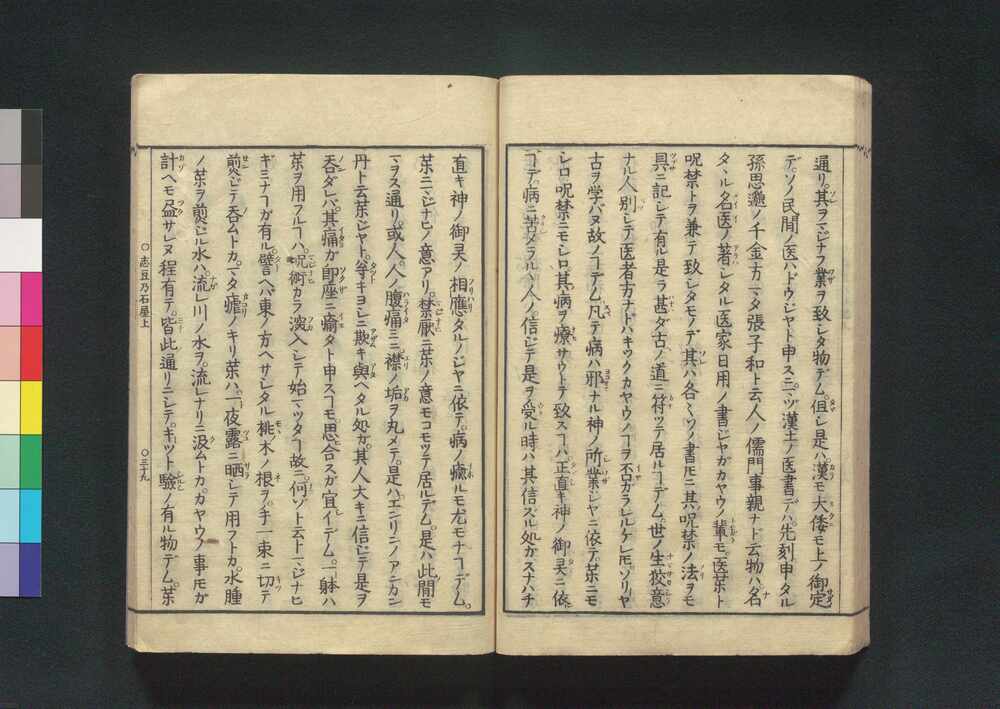 通リ。其ヲマジナフ業ヲ致シタ物デム。但シ是ハ漢モ大倭モ上ノ御定
デ。ソノ民間ノ医ハドウジヤト申スニ。マヅ漢土ノ医書デハ先刻申タル
孫思邈ノ千金方マタ張子和ト云人ノ儒門事親ナト云物ハ名
タヽル名医ノ著シタル医家日用ノ書ジヤガカヤウノ輩モ。医薬ト
呪禁トヲ兼テ致シタモノデ其ハ各ミツノ書𪜈ニ其呪禁ノ法ヲモ
具ニ記シテ有ル是ラ甚ダ古ノ道ニ符ツテ居ルヿデム。世ノ生狡意
ナル人別シテ医者方ナドハキツクカヤウノヿヲ否ガラレルケレ𪜈。ソリヤ
古ヲ学バヌ故ノヿデム。凡テ病ハ邪ナル神ノ所業ジヤニ依テ薬ニモ
シロ呪禁ニモシロ其病ヲ療サウトテ致スヿハ。正直キ神ノ御霊ニ依
ヿデ。病ニ苦メラルヽ人ノ。信ジテ是ヲ受ル時ハ其信ズル処ガスナハチ
直キ神ノ御霊ノ相應タルノジヤニ依テ。病ノ癒ルモ尤モナヿデム。
薬ニマジナヒノ意アリ。禁厭ニ薬ノ意モコモツテ居ルデム。是ハ此間モ
マヲス通リ。或人。人ノ腹痛ミニ襟ノ垢ヲ丸メテ。是ハエシリンノアテカン
丹ト云薬ジヤト。等キヨシニ欺キ與ヘタル処ガ。其人大キニ信ジテ是ヲ
呑ダレバ。其痛ガ即座ニ瘉タト申スヿモ。思合スガ宜イデム。一躰ハ
薬ヲ用フルヿハ。呪術カラ演入シテ始マツタヿ故ニ。何ゾト云トマジナヒ
ギミナヿガ有ル。譬ヘバ東ノ方ヘサシタル桃木ノ根ヲ。手一束ニ切テ
煎ジテ呑ムトカ。マタ瘧ノキリ薬ハ。一夜露ニ晒シテ用フトカ。水腫
ノ薬ヲ煎ジル水ハ。流レ川ノ水ヲ。流レナリニ汲ムトカ。カヤウノ事𪜈ガ
計ヘモ盡サレヌ程有テ。皆此通リニシテ。キツト驗ノ有ル物デム。薬
○志豆乃石屋上
○三十九